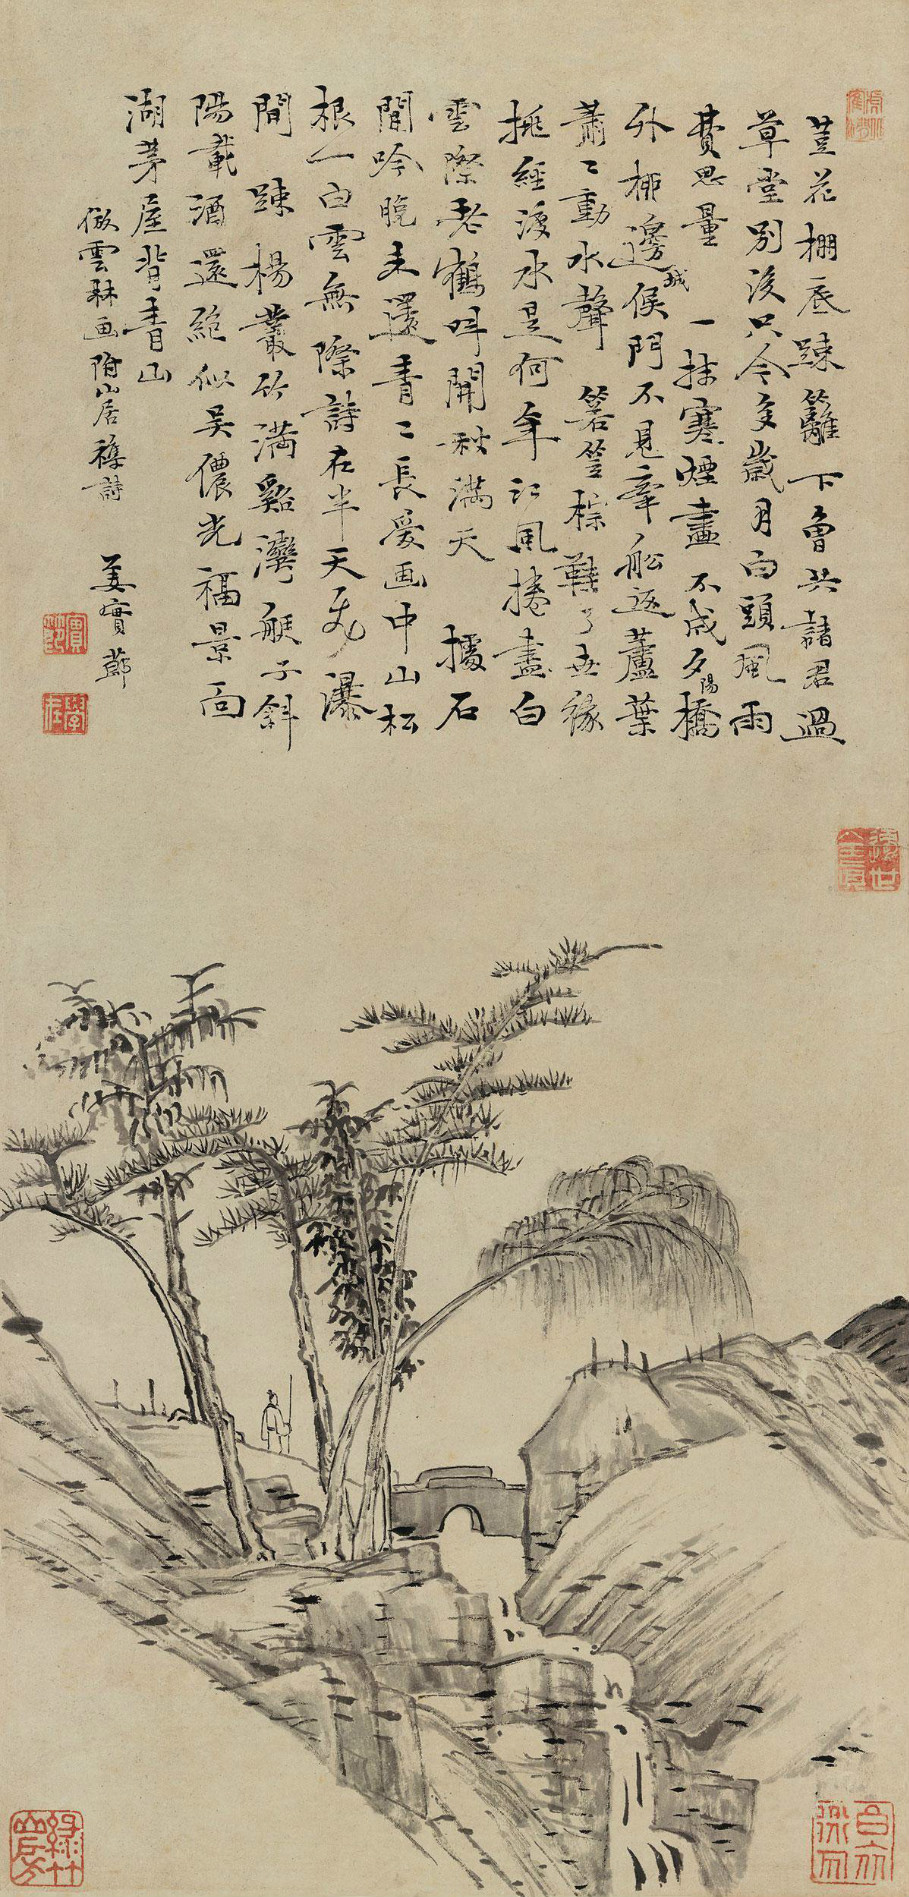 荳花棚底疎籬下曾共諸君過
草堂別後只今多歲月白頭風雨
費思量 一抹寒煙畫不成夕陽橋
外柳邊城侯門不見牽船返蘆葉
蕭〻動水聲 箬笠棕鞵了世緣
挑經渡水是何年江風捲盡白
雲際老鶴叫開秋滿天 據石
閒吟晚未還青〻長愛画中山松
根白雲無際詩在半天瀑
間 疎楊叢竹滿谿灣艇子斜
陽載酒還絕似吳儂光福景面
湖茅屋背青山
倣雲林画附山居詩 姜實節
實節
學在